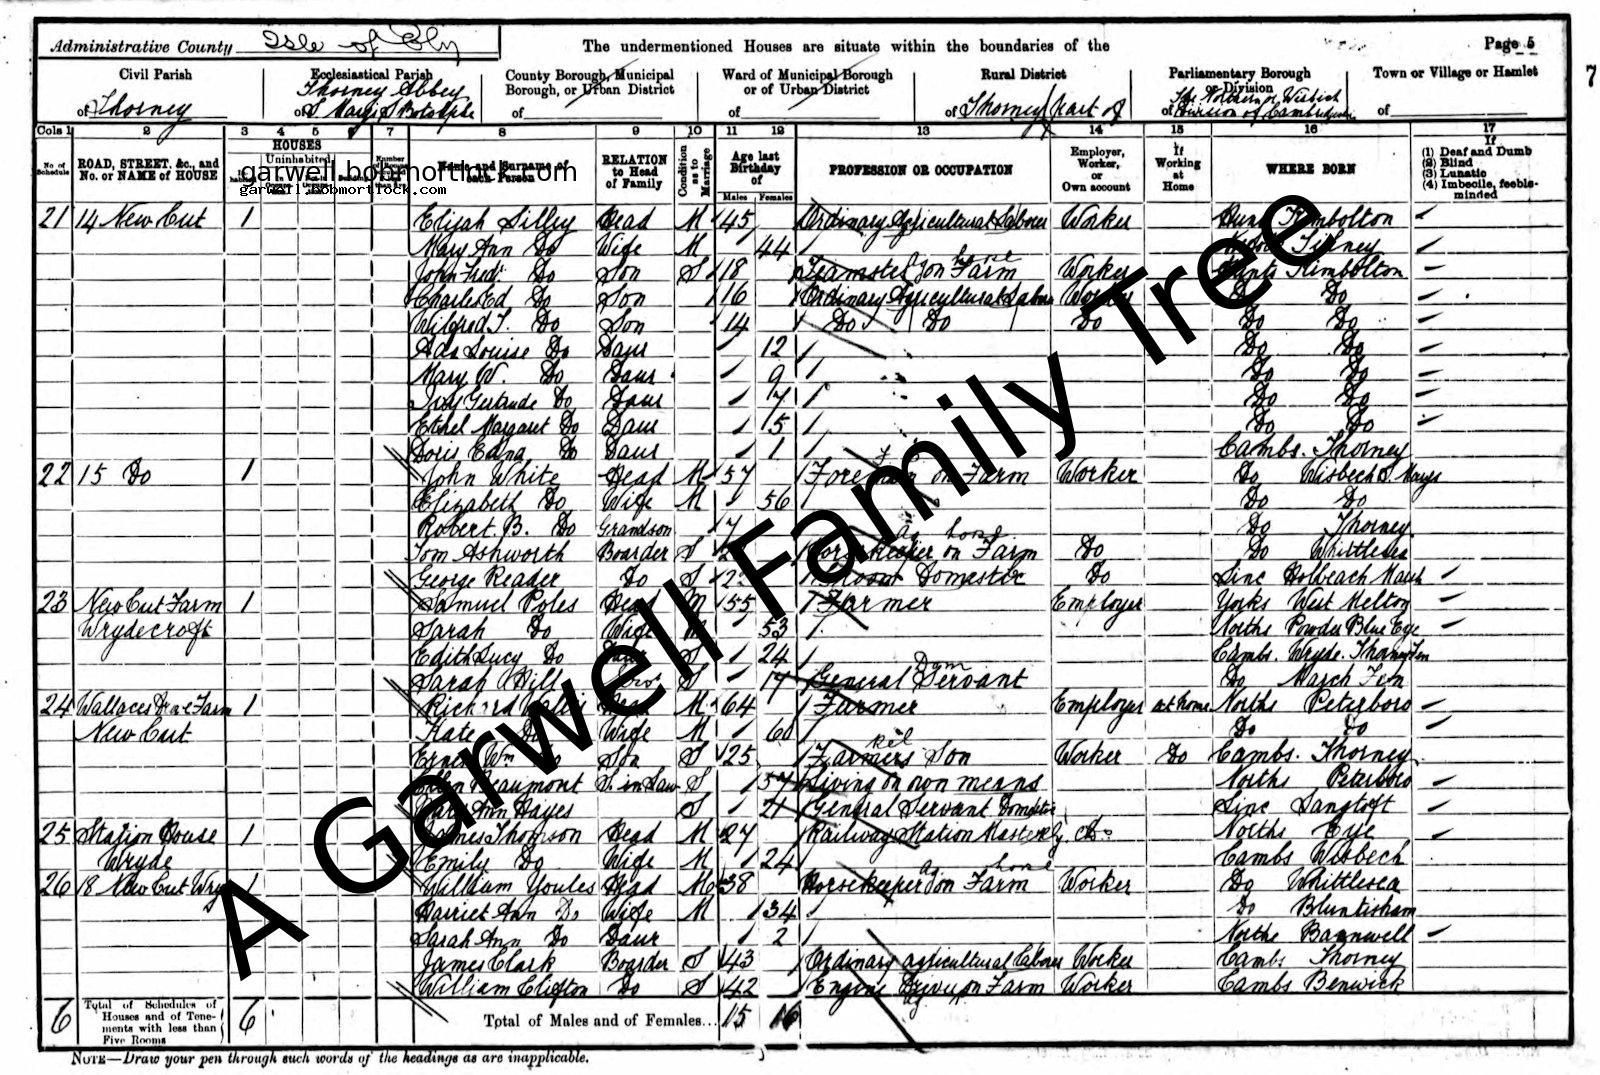 Administrative County Isle of Ely
The undermentioned Houses are situate within the boundaries of the
Page 5
7
Civil Parish of Thorney
Ecclesiastical Parish of Thorney Abbey S. Mary & S Botolphs
County Borough, Municipal Borough, or Urban District
Ward of Municipal Borough or of Urban District of
Rural District of Thorney (part of
Parliamentary Borough or Division of The Northern or Wisbech Division of Cambridgeshire
Town or Village or Hamlet of
Cols 1 2 3 4 5 6 7 8 9 10 11 12 13 14 15 16 17
No. of Schedule
ROAD, STREET, &c., and No. or NAME of HOUSE
HOUSES
Uninhabited
Name and Surname of each Person
RELATION to Head of Family
Condition as to Marriage
Age last Birthday of
Males Females
PROFESSION OR OCCUPATION
Employer, Worker, or Own account
If Working at Home
WHERE BORN
If (1) Deaf and Dumb (2) Blind (3) Lunatic (4) Imbecile, feeble-minded
garwell.bobmortlock.com
garwell.bobmortlock.com
21 14 New Cut 1 Elijah Silley Head M 45 Ordinary Agricultural Laborer Worker Hunts Kimbolton
Mary Ann Do Wife M 44
John Fredk Do Son S 18 Teamster on Farm Worker Hunts Kimbolton
Charles Ed Do Son 16 Ordinary Agricultural Labour Worker Do Do
Wilfred J. Do Son 14 Do Do Do Do Do
Ada Louise Do Daur 12 Do Do
Mary W. Do Daur 9 Do Do
Ivy Gertrude Do Daur 7 Do Do
Ethel Margaret Do Daur 5 Do Do
Doris Edna Do Daur 1 Cambs. Thorney
22 15 Do 1 John White Head M 57 Foreman on Farm Worker Do Wisbech S. Marys
Elizabeth Do Wife M 56 Do Do
Robert B. Do Grandson 7 Do Thorney
Tom Ashworth Boarder S Horsekeeper on Farm Do Do Whittlesea
George Reader Do S Groom Domestic Do Linc Holbeach Marsh
23 New Cut Farm 1 Samuel Poles Head M 55 Farmer Employer Yorks West Melton
Wrydecroft Sarah Do Wife M 53 Norths Powder Blue Eye
Edith Lucy Do Daur S 24 Cambs. Wryde. Thorney Fen
Sarah Hill S 17 General Servant Dom Do March Fen
24 Wallaces Drove Farm 1 Richard M 64 Farmer Employer at home Norths Peterboro
New Cut Kate Do Wife M 60 Do Do
Ernest Wm Do Son S 25 Farmers Son Worker Do Cambs. Thorney
Ellen Beaumont S. in Law S 57 Living on own means Norths Peterboro
Mary Ann Hayes S 21 General Servant Domestic Linc Langtoft
25 Station House 1 James Thomson Head M 27 Railway Station Master Norths Eye
Wryde Emily Do Wife M 24 Cambs Wisbech
26 18 New Cut Wry 1 William Youles Head M 38 Horsekeeper on Farm Worker Do Whittlesea
Harriet Ann Do Wife M 34 Do Bluntisham
Sarah Ann Do Daur 2 Norths Barnwell
James Clark Boarder S 43 Ordinary agricultural laborer Worker Cambs Thorney
William Clifton Do S 42 Engine Driver on Farm Worker Cambs Benwick
6 Total of Schedules of Houses and of Tenements with less than Five Rooms 6 Total of Males and of Females... 15 16
NOTE—Draw your pen through such words of the headings as are inapplicable.
A Garwell Family Tree